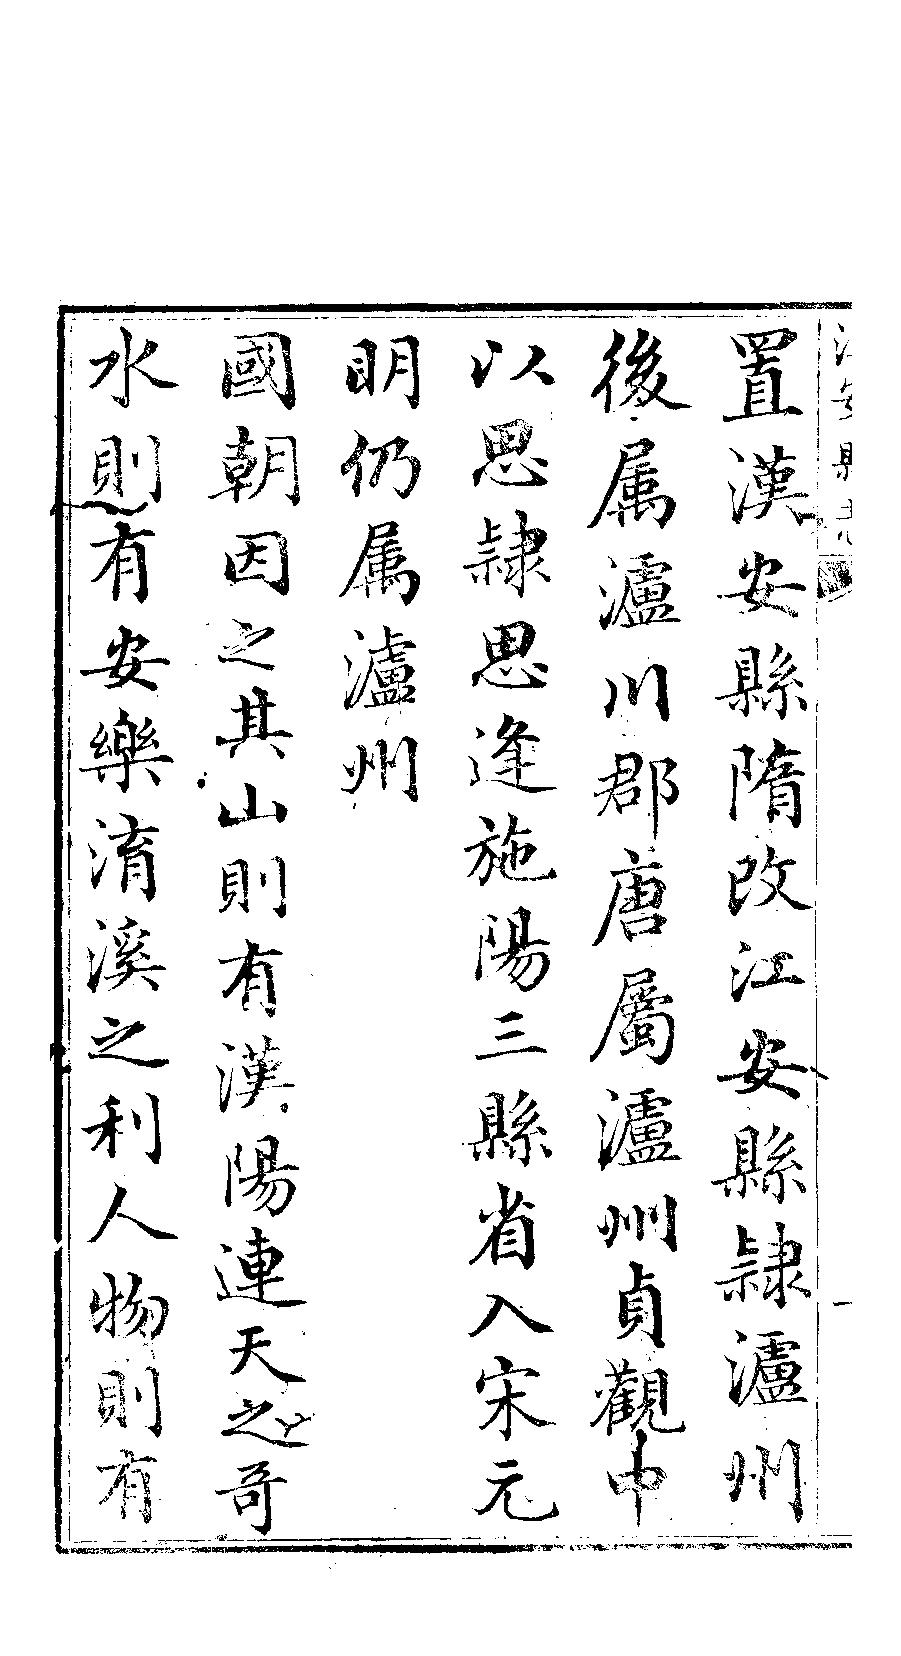 江安縣志
一
置漢安縣隋改江安縣隷瀘州
後属瀘川郡唐屬瀘州貞觀中
以思隷思逢施陽三縣省入宋元
明仍属瀘州
國朝因之其山則有漢陽連天之奇
水則有安樂淯溪之利人物則有